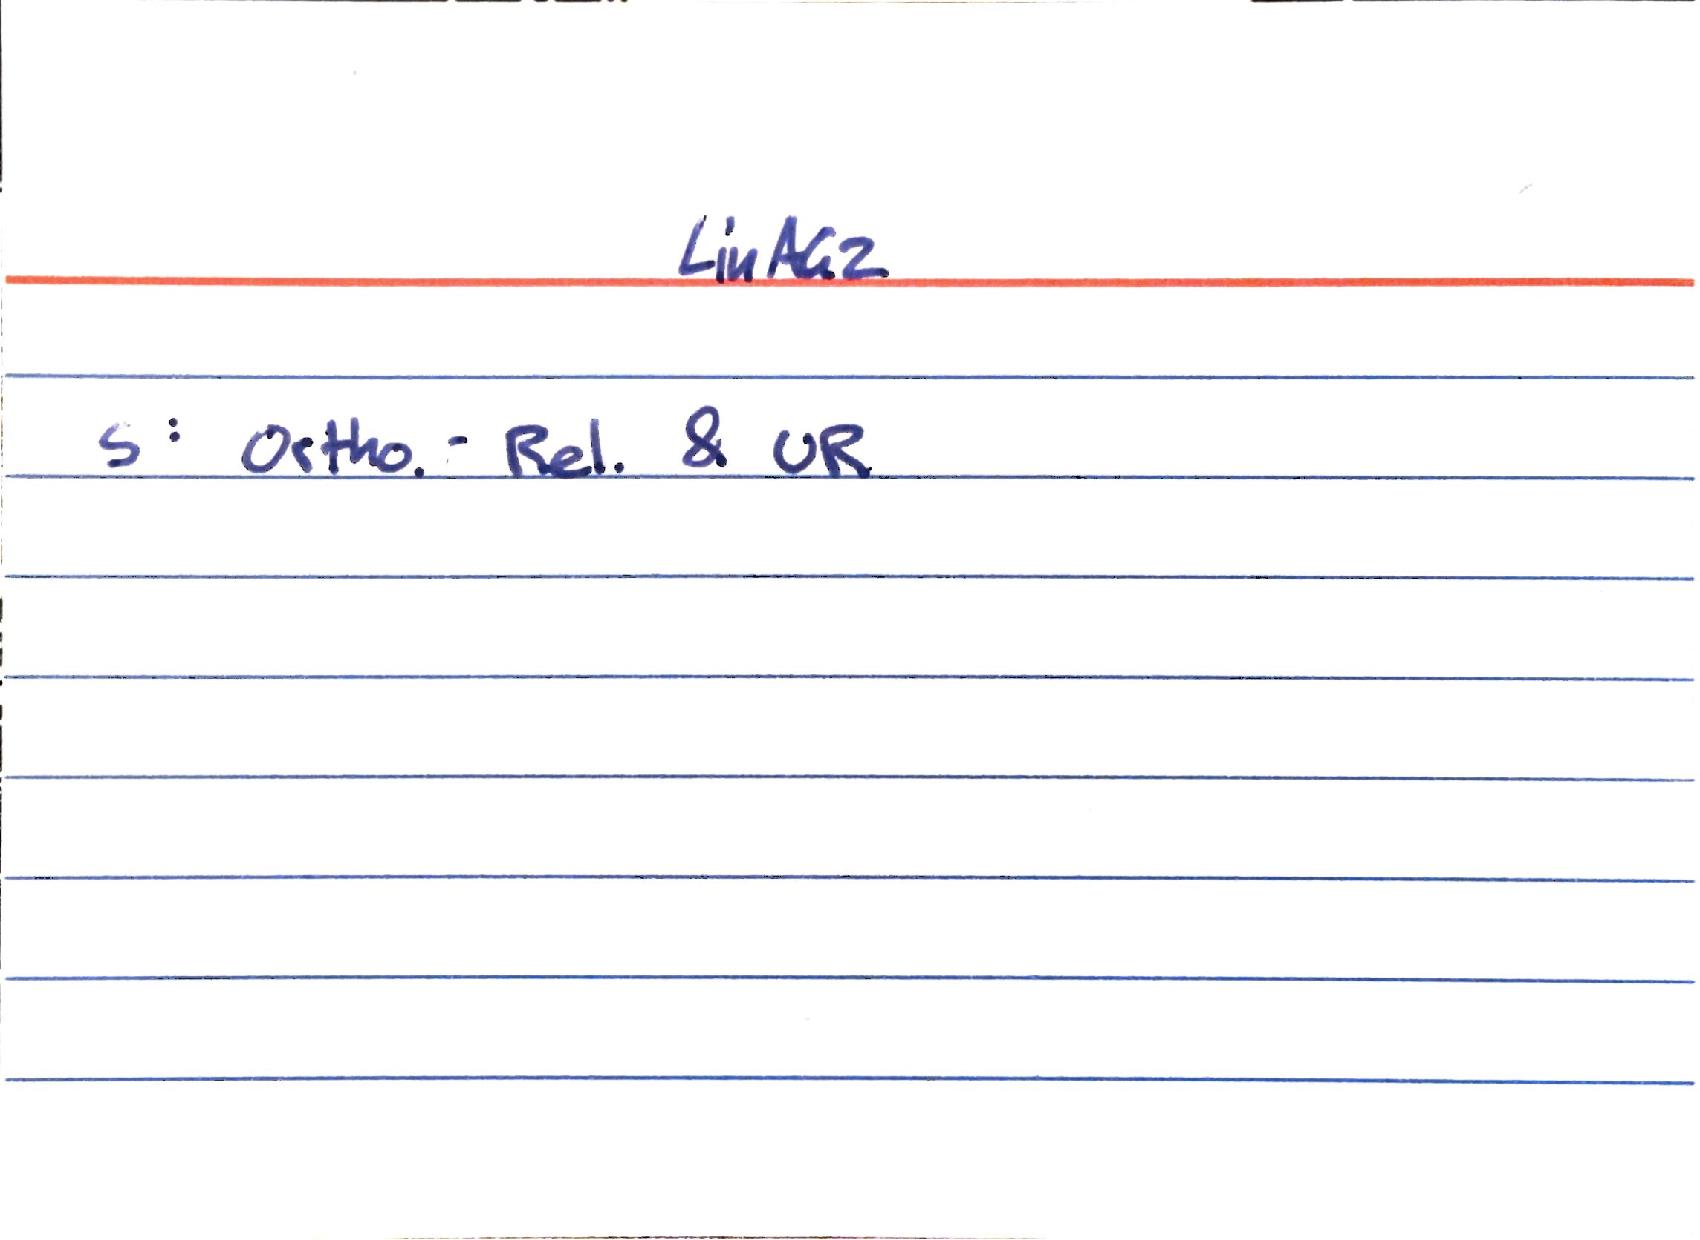 LinAG2
S: Ortho.-Rel. & UR